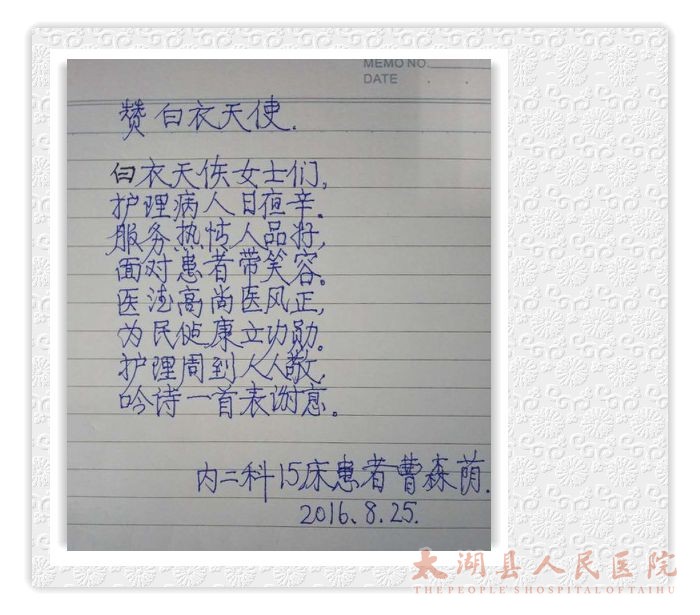 MEMO NO.
DATE . .
赞白衣天使.
白衣天使女士们,
护理病人日夜辛.
服务热情人品好,
面对患者带笑容.
医德高尚医风正,
为民健康立功勋.
护理周到人人敬,
吟诗一首表谢意.
内二科15床患者曹森荫.
2016.8.25.
太湖县人民医院
THE PEOPLE'S HOSPITAL OF TAIHU